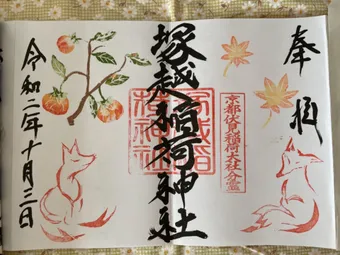 奉拝
京都伏見稲荷大社分霊
塚越稲荷神社
令和二年十月三日